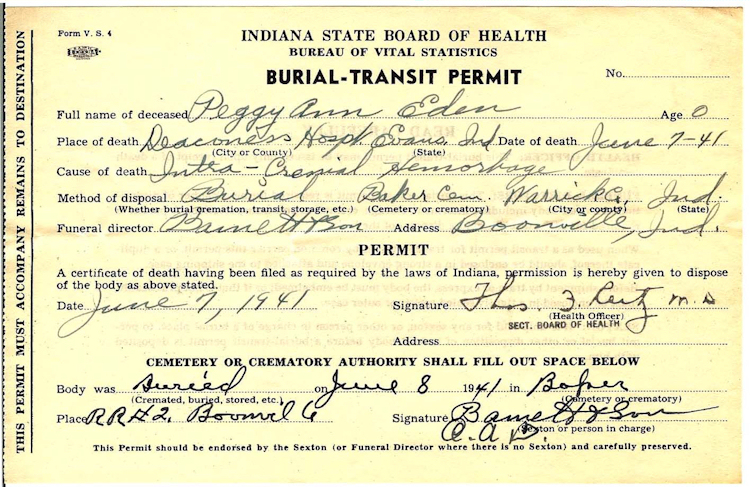 Form V. S. 4
INDIANA STATE BOARD OF HEALTH
BUREAU OF VITAL STATISTICS
BURIAL-TRANSIT PERMIT
No.
Full name of deceased Peggy Ann Eden Age 0
Place of death Deaconess Hosp. Evans. Ind. Date of death June 7-41
(City or County) (State)
Cause of death Intra-Cranial Hemorhage
Method of disposal Burial Baker Cem. Warrick Co, Ind.
(Whether burial cremation, transit, storage, etc.) (Cemetery or crematory) (City or county) (State)
Funeral director Barnett & Son Address Boonville, Ind.
PERMIT
A certificate of death having been filed as required by the laws of Indiana, permission is hereby given to dispose
of the body as above stated.
Date June 7, 1941 Signature Thos. J. Reitz M.D
(Health Officer)
SECT. BOARD OF HEALTH
Address
CEMETERY OR CREMATORY AUTHORITY SHALL FILL OUT SPACE BELOW
Body was Buried on June 8 1941 in Baker
(Cremated, buried, stored, etc.) (Cemetery or crematory)
Place RR# 2. Signature Barnett & Son
(Sexton or person in charge)
C. A. B.
This Permit should be endorsed by the Sexton (or Funeral Director where there is no Sexton) and carefully preserved.
THIS PERMIT MUST ACCOMPANY REMAINS TO DESTINATION